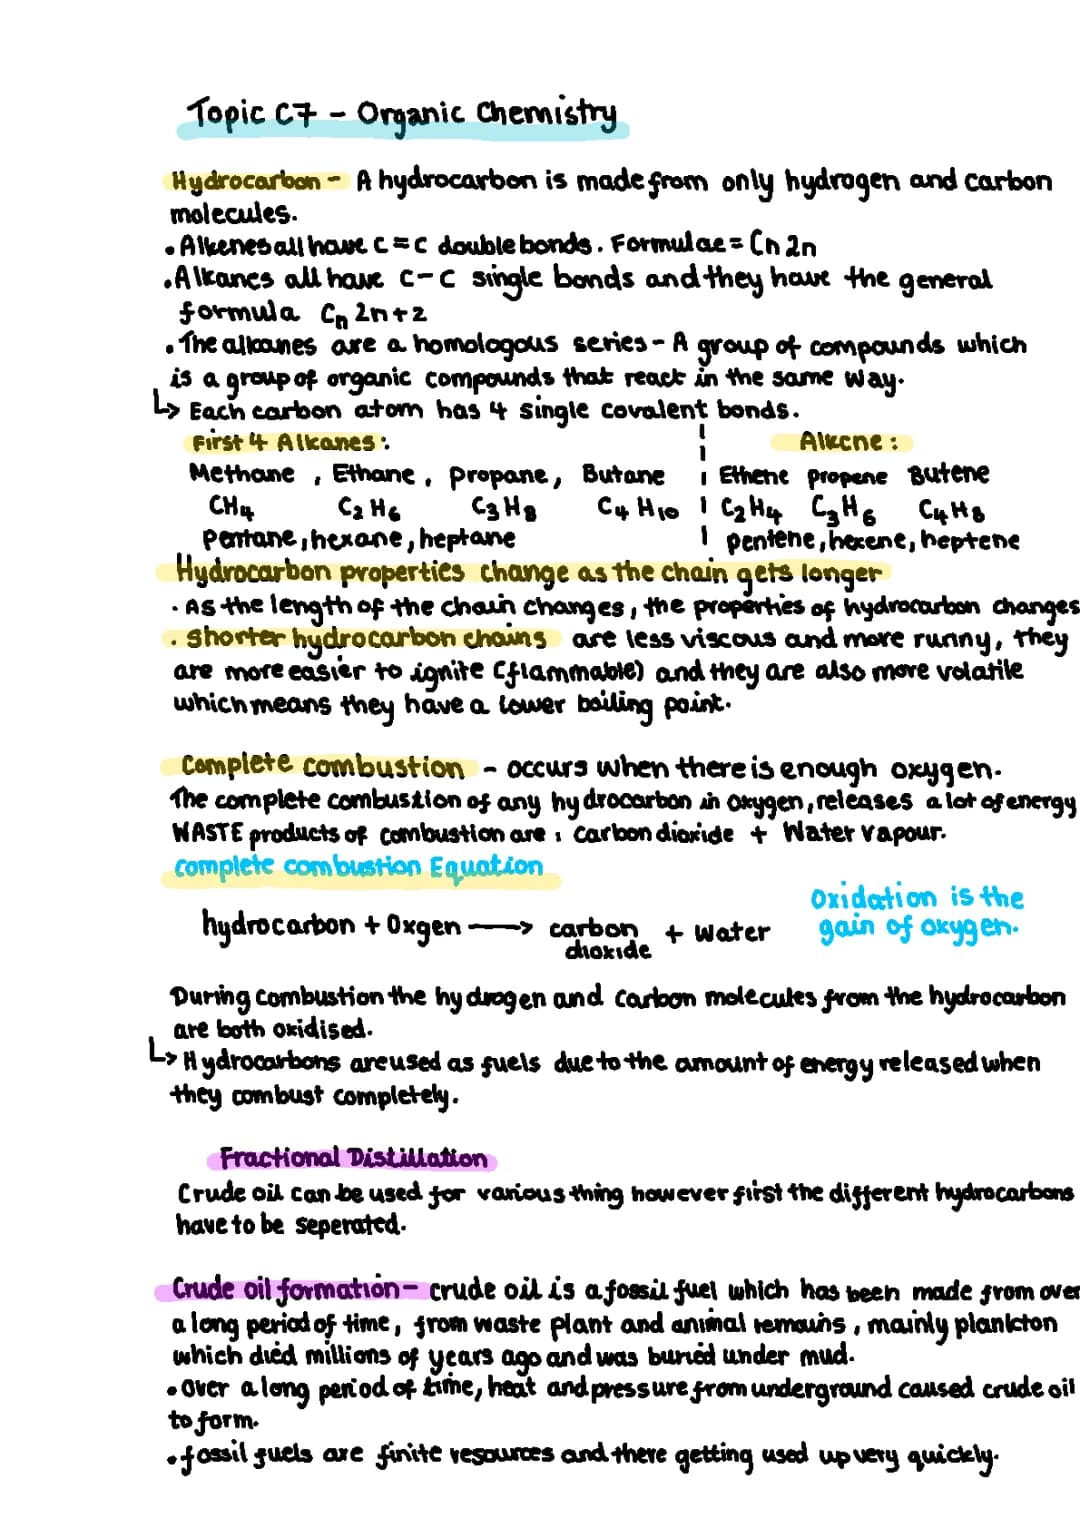 Topic C7 - Organic Chemistry
Hydrocarbon - A hydrocarbon is made from only hydrogen and carbon
molecules.
• Alkenes all have C=C double bonds. Formulae = Cn 2n
• Alkanes all have C-C single bonds and they have the general
formula Cn 2n+2
• The alkanes are a homologous series - A group of compounds which
is a group of organic compounds that react in the same way.
↳ Each carbon atom has 4 single covalent bonds.
First 4 Alkanes: Alkene:
Methane, Ethane, Propane, Butane Ethene propene Butene
CH4 C2H6 C3H8 C4H10 C2H4 C3H6 C4H8
Pentane, hexane, heptane pentene, hexene, heptene
Hydrocarbon properties change as the chain gets longer
• As the length of the chain changes, the properties of hydrocarbon changes
• Shorter hydrocarbon chains are less viscous and more runny, they
are more easier to ignite (flammable) and they are also more volatile
which means they have a lower boiling point.
Complete combustion - occurs when there is enough oxygen.
The complete combustion of any hydrocarbon in oxygen, releases a lot of energy
WASTE products of combustion are: Carbon dioxide + Water Vapour.
Complete combustion Equation
hydrocarbon + Oxgen → carbon dioxide + Water
Oxidation is the
gain of oxygen.
During combustion the hydrogen and carbon molecules from the hydrocarbon
are both oxidised.
↳ Hydrocarbons are used as fuels due to the amount of energy released when
they combust completely.
Fractional Distillation
Crude oil can be used for various thing however first the different hydrocarbons
have to be seperated.
Crude oil formation - crude oil is a fossil fuel which has been made from over
a long period of time, from waste plant and animal remains, mainly plankton
which died millions of years ago and was buried under mud.
• Over a long period of time, heat and pressure from underground caused crude oil
to form.
• fossil fuels are finite resources and there getting used up very quickly.